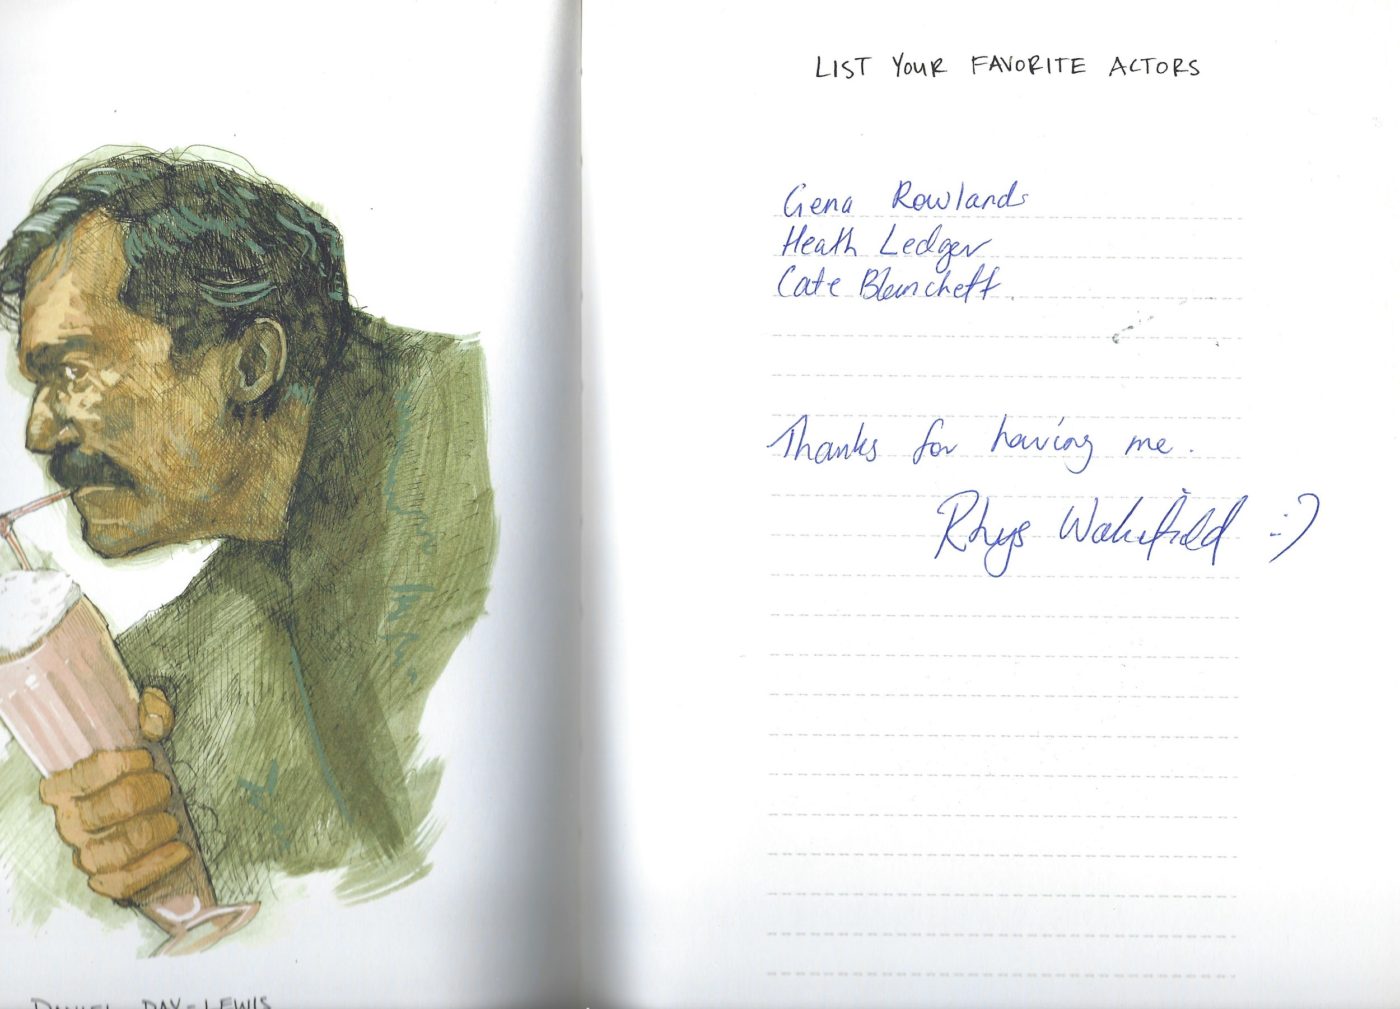 LIST YOUR FAVORITE ACTORS
Gena Rowlands
Heath Ledger
Cate Blanchett.
Thanks for having me.
Rhys Wakefield :)
DANIEL DAY-LEWIS